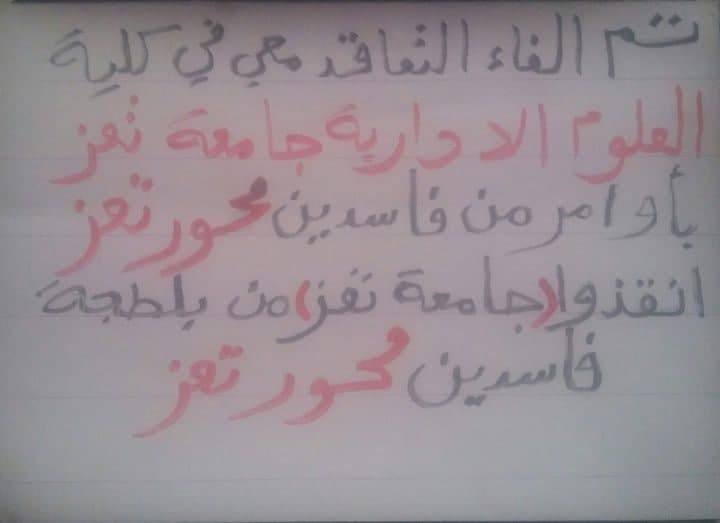 تم الغاء التعاقد معي في كلية
العلوم الادارية جامعة تعز
بأوامر من فاسدين محور تعز
انقذوا (جامعة تعز) من بلطجة
فاسدين محور تعز